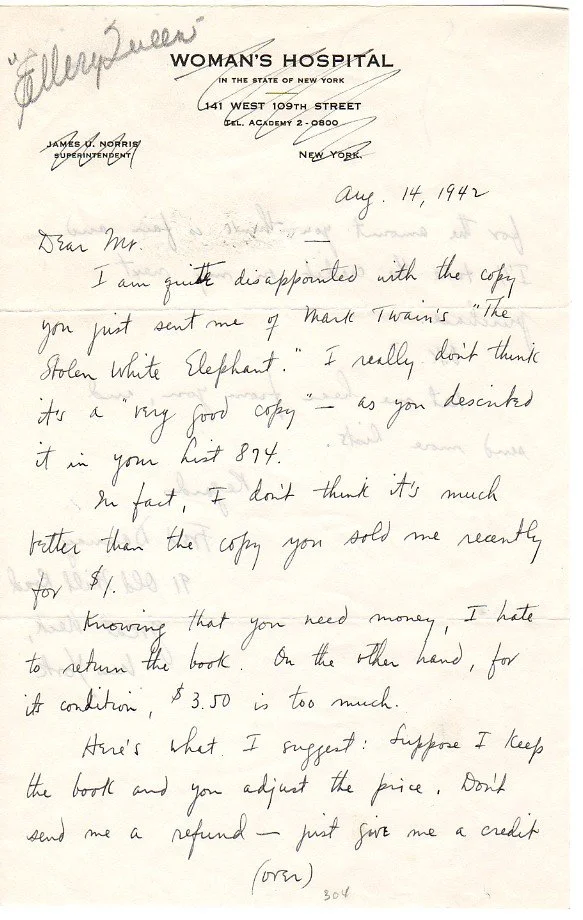 "Ellery Queen"
WOMAN'S HOSPITAL
IN THE STATE OF NEW YORK
141 WEST 109TH STREET
TEL. ACADEMY 2-0800
JAMES U. NORRIS
SUPERINTENDENT
NEW YORK.
Aug. 14, 1942
Dear Mr. —
I am quite disappointed with the copy
you just sent me of Mark Twain's "The
Stolen White Elephant." I really don't think
it's a "very good copy" — as you described
it in your List 874.
In fact, I don't think it's much
better than the copy you sold me recently
for $1.
Knowing that you need money, I hate
to return the book. On the other hand, for
its condition, $3.50 is too much.
Here's what I suggest: Suppose I keep
the book and you adjust the price. Don't
send me a refund — just give me a credit
(over)
304